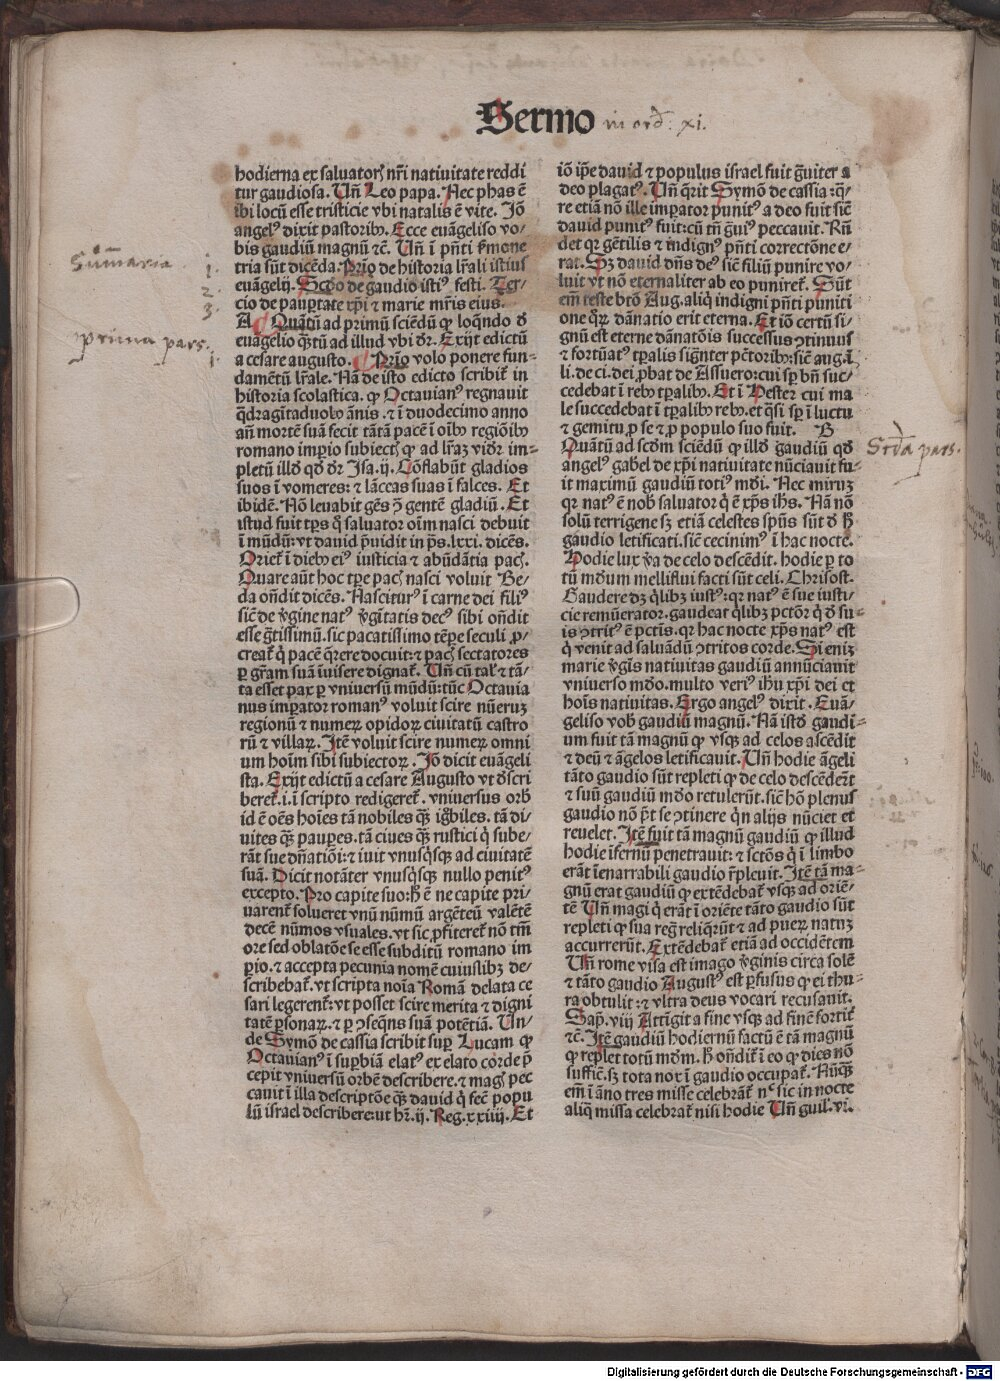 Sermo in ord. xi.
hodierna ex saluatorꝭ nr̄i natiuitate reddi
tur gaudiosa. Un̄ Leo papa. Nec phas ē
ibi locū esse tristicie vbi natalis ē vite. Iō
angelꝰ dixit pastoribꝰ. Ecce euāgeliso vo/
bis gaudiū magnū ⁊c̄. Un̄ ī pn̄ti ẜmone
tria sūt dicēda. Prīo de historia lr̄ali istius
euāgelij. Scd̄o de gaudio istiꝰ festi. Ter/
cio de paup̄tate xp̄i ⁊ marie mr̄is eius.
A Quātū ad primū sciēdū ꝙ loq̄ndo d̄
euāgelio q̄stū ad illud vbi dr̄. Exijt edictū
a cesare augusto. Prīo volo ponere fun-
damētū lr̄ale. Nā de isto edicto scribit̄ in
historia scolastica. ꝙ Octauianꝰ regnauit
q̄dragītaduobꝰ ānis. ⁊ ī duodecimo anno
an̄ mortē suā fecit tātā pacē ī oībꝰ regiōibꝰ
romano imp̄io subiectꝭ ꝙ ad lr̄aꝫ vidr̄ im-
pletū illd̓ qd̓ dr̄ Isa. ij. Cōflabūt gladios
suos ī vomeres: ⁊ lāceas suas ī falces. Et
ibidē. Nō leuabit gēs ꝯ̄ gentē gladiū. Et
istud fuit tp̄s q̄ saluator oīm nasci debuit
ī mūdū: vt dauid p̄uidit in ps̄. lxxi. dicēs.
Oriet̄ ī diebꝰ eiꝰ iusticia ⁊ abūdātia pacꝭ.
Quare aūt hoc tp̄e pacꝭ nasci voluit Be-
da on̄dit dicēs. Nasciturꝰ ī carne dei filiꝰ
sic̄ de v̓gine natꝰ v̓gītatis decꝰ sibi on̄dit
esse gr̄tissimū. sic pacatissimo tēpe seculi ꝓ/
creat̄ q̄ pacē q̄rere docuit: ⁊ pacꝭ sectatores
ꝑ gr̄am suā īuisere dignat̄. Un̄ cū tal̄ ⁊ tā/
ta esset pax ꝑ vniuersū mūdū: tūc Octauia
nus imꝑator romanꝰ voluit scire nūeruꝫ
regionū ⁊ numeꝝ opidoꝝ ciuitatū castro
rū ⁊ villaꝝ. Itē voluit scire numeꝝ omni
um hoīm sibi subiectoꝝ. Iō dicit euāgeli
sta. Exijt edictū a cesare Augusto vt d̓scri
beret̄. i. ī scripto redigeret̄. vniuersus orb̓
id ē oēs hoīes tā nobiles qꝫ̄ ignobiles. tā di-
uites qꝫ̄ pauꝑes. tā ciues qꝫ̄ rustici q̄ sube/
rāt sue dn̄atiōi: ⁊ iuit vnusq̄sqꝫ ad ciuitatē
suā. Dicit notāter vnusq̄sqꝫ nullo penitꝰ
excepto. Pro capite suo: ħ ē ne capite pri/
uarent̄ solueret vnū nūmū argēteū valētē
decē nūmos vsuales. vt sic ꝓfiteret̄ nō tm̄
ore sed oblatōe se esse subditū romano im
ꝑio. ⁊ accepta pecunia nomē cuiuslibꝫ de/
scribebat̄. vt scripta noīa Romā delata ce
sari legerent̄: vt posset scire merita ⁊ digni
tatē ꝑsonaꝝ. ⁊ ꝑ ꝯseq̄ns suā potētiā. Un/
de Symō de cassia scribit suꝑ Lucam ꝙ
Octauianꝰ ī suꝑbiā elatꝰ ex elato corde p̄
cepit vniuersū orbē describere. ⁊ magꝭ pec
cauit ī illa descriptōe qꝫ̄ dauid q̄ fec̄ popu
lū israel describere: vt hr̄. ij. Reg. xxiiij. Et
iō ip̄e dauid ⁊ populus israel fuit gr̄uiter a
deo plagatꝰ. Un̄ q̄rit Symō de cassia: q̄-
re etiā nō ille imꝑator punitꝰ a deo fuit sic̄
dauid punitꝰ fuit: cū tn̄ gr̄uiꝰ peccauit. Rn̄
det qꝛ gētilis ⁊ indignꝰ pn̄ti correctōne e-
rat. Sꝫ dauid dn̄s deꝰ sic̄ filiū punire vo-
luit vt nō eternaliter ab eo puniret̄. Sūt
em̄ teste btō Aug. aliq̄ indigni pn̄ti puniti
one qͦꝝ dānatio erit eterna. Et iō certū si-
gnū est eterne dānatōis successus ꝯtinuus
⁊ fortūatꝰ tꝑalis sigr̄nter pctōribꝰ: sic̄ aug. ī
li. de ci. dei ꝓbat de Assuero: cui sꝑ bn̄ suc/
cedebat ī rebꝰ tꝑalibꝰ. Et ī Hester cui ma
le succedebat ī tꝑalibꝰ rebꝰ. et q̄si sꝑ ī luctu
⁊ gemitu ꝓ se ⁊ ꝓ populo suo fuit. B
Quātū ad scd̓m sciēdū ꝙ illd̓ gaudiū qd̓
angelꝰ gabr̄el de xp̄i natiuitate nūciauit fu-
it maximū gaudiū totiꝰ mūdi. Nec miruꝫ
qꝛ natꝰ ē nob̓ saluator q̄ ē xp̄s ih̄s. Nā nō
solū terrigene sꝫ etiā celestes sp̄ūs sūt d̓ ħ
gaudio letificati. sic̄ cecinimꝰ ī hac nocte.
Hodie lux v̓a de celo descēdit. hodie ꝑ to
tū mūdum melliflui facti sūt celi. Chrisost.
Gaudere dꝫ q̄libꝫ iustꝰ: qꝛ natꝰ ē sue iusti-
cie remūerator. gaudeat q̄libꝫ pctōr q̄ d̓ su-
is ꝯtritꝰ ē pctīs. qꝛ hac nocte xp̄s natꝰ est
q̄ venit ad saluādū ꝯtritos corde. Si enīꝫ
marie v̓gīs natiuitas gaudiū annūciauit
vniuerso mūdo. multo veriꝰ ih̄u xp̄i dei et
hoīs natiuitas. Ergo angelꝰ dixit. Euā-
geliso vob̓ gaudiū magnū. Nā istd̓ gaudi-
um fuit tā magnū ꝙ vsqꝫ ad celos ascēdit
⁊ deū ⁊ āgelos letificauit. Un̄ hodie āgeli
tāto gaudio sūt repleti ꝙ de celo descēderūt
⁊ suū gaudiū mūdo retulerūt. sic̄ hō plenus
gaudio nō p̄t se ꝯtinere q̄n alijs nūciet et
reuelet. Itē fuit tā magnū gaudiū ꝙ illud
hodie īfernū penetrauit: ⁊ sctōs q̄ ī limbo
erāt īenarrabili gaudio r̄pleuit. Itē tā ma-
gnū erat gaudiū ꝙ extēdebat̄ vsqꝫ ad oriē-
tē Un̄ magi q̄ erāt ī oriēte tāto gaudio sūt
repleti ꝙ sua regn̄ reliq̄rūt ⁊ ad pueꝝ natuꝫ
accurrerūt. Extēdebat̄ etiā ad occidētem
Un̄ rome visa est imago v̓ginis circa solē
⁊ tāto gaudio Augustꝰ est ꝑfusus ꝙ ei thu-
ra obtulit: ⁊ vltra deus vocari recusauit.
Sap̄. viij Attīgit a fine vsqꝫ ad finē fortit̄
⁊c̄. Itē gaudiū hodiernū factū ē tā magnū
ꝙ replet totū mūdm̄. ħ on̄dit̄ ī eo ꝙ dies nō
suffic̄. sꝫ tota nox ī gaudio occupat̄. Nūqꝫ
em̄ ī āno tres misse celebrāt̄ nc̄ sic in nocte
aliq̄ missa celebrat̄ nisi hodie Un̄ guil̓. vi.
Sum̄aria
1.
2.
3.
prima pars.
1.
Scd̄a pars.
Digitalisierung gefördert durch die Deutsche Forschungsgemeinschaft - DFG